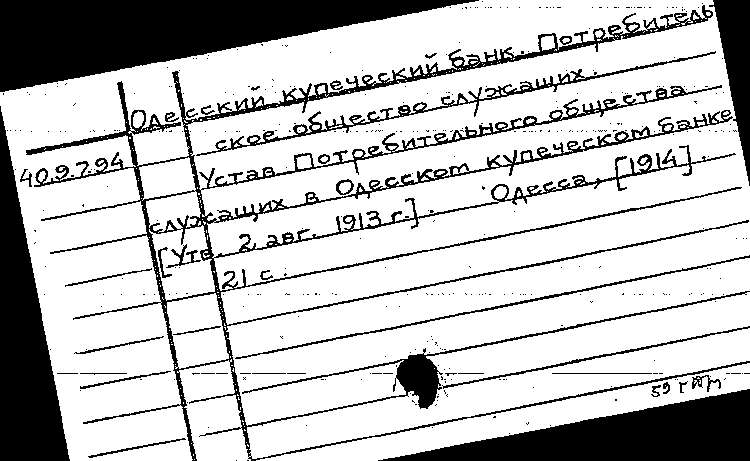 Одесский купеческий банк. Потребитель
ское общество служащих.
40.9.7.94
Устав Потребительного общества
служащих в Одесском купеческом банке
[Утв. 2 авг. 1913 г.]. Одесса, [1914].
21 с.